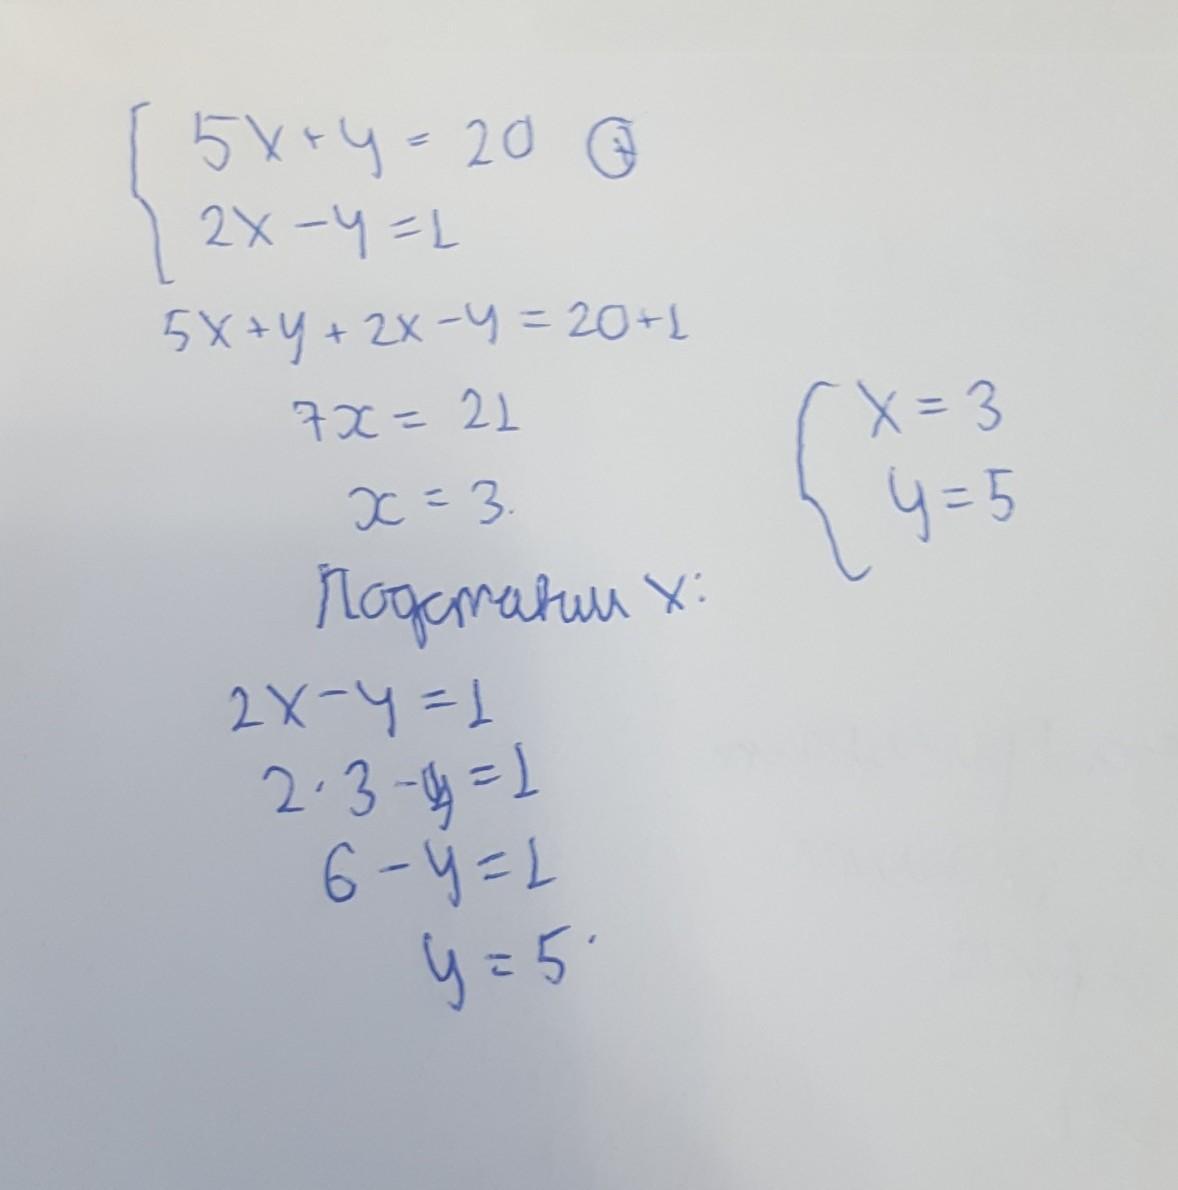 5x+y=20 ⊕
2x-y=1
5x+y+2x-y=20+1
7x=21
x=3.
Подставим x:
2x-y=1
2·3-y=1
6-y=1
y=5.
x=3
y=5